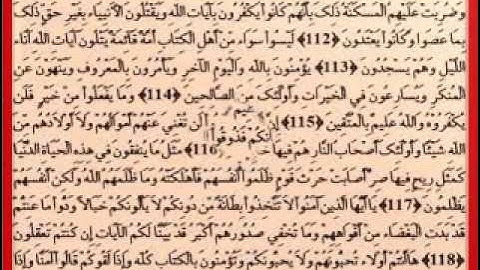 وَضُرِبَتْ عَلَيْهِمُ الْمَسْكَنَةُ ذلِكَ بِأَنَّهُمْ كَانُوا يَكْفُرُونَ بِآيَاتِ اللهِ وَيَقْتُلُونَ الأَنْبِيَاءَ بِغَيْرِ حَقٍّ ذلِكَ
بِمَا عَصَوْا وَكَانُوا يَعْتَدُونَ ﴿112﴾ لَيْسُوا سَوَاءً مِنْ أَهْلِ الْكِتَابِ أُمَّةٌ قَائِمَةٌ يَتْلُونَ آيَاتِ اللهِ آنَاءَ
اللَّيْلِ وَهُمْ يَسْجُدُونَ ﴿113﴾ يُؤْمِنُونَ بِاللهِ وَالْيَوْمِ الآخِرِ وَيَأْمُرُونَ بِالْمَعْرُوفِ وَيَنْهَوْنَ عَنِ
الْمُنْكَرِ وَيُسَارِعُونَ فِي الْخَيْرَاتِ وَأُولئِكَ مِنَ الصَّالِحِينَ ﴿114﴾ وَمَا يَفْعَلُوا مِنْ خَيْرٍ فَلَنْ
يُكْفَرُوهُ وَاللهُ عَلِيمٌ بِالْمُتَّقِينَ ﴿115﴾ إِنَّ تُغْنِيَ عَنْهُمْ أَمْوَالُهُمْ وَلاَ أَوْلاَدُهُمْ مِنَ
اللهِ شَيْئًا وَأُولئِكَ أَصْحَابُ النَّارِ هُمْ فِيهَا 116﴾ مَثَلُ مَا يُنْفِقُونَ فِي هذِهِ الْحَيَاةِ الدُّنْيَا
كَمَثَلِ رِيحٍ فِيهَا صِرٌّ أَصَابَتْ حَرْثَ قَوْمٍ ظَلَمُوا أَنْفُسَهُمْ فَأَهْلَكَتْهُ وَمَا ظَلَمَهُمُ اللهُ وَلكِنْ أَنْفُسَهُمْ
يَظْلِمُونَ ﴿117﴾ يَا أَيُّهَا الَّذِينَ آمَنُوا لاَ تَتَّخِذُوا بِطَانَةً مِنْ دُونِكُمْ لاَ يَأْلُونَكُمْ خَبَالاً وَدُّوا مَا عَنِتُّمْ
قَدْ بَدَتِ الْبَغْضَاءُ مِنْ أَفْوَاهِهِمْ وَمَا تُخْفِي صُدُورُهُمْ أَكْبَرُ قَدْ بَيَّنَّا لَكُمُ الآيَاتِ إِنْ كُنْتُمْ تَعْقِلُونَ
﴿118﴾ هَاأَنْتُمْ أُولاَءِ تُحِبُّونَهُمْ وَلاَ يُحِبُّونَكُمْ وَتُؤْمِنُونَ بِالْكِتَابِ كُلِّهِ وَإِذَا لَقُوكُمْ قَالُوا آمَنَّا وَإِذَا